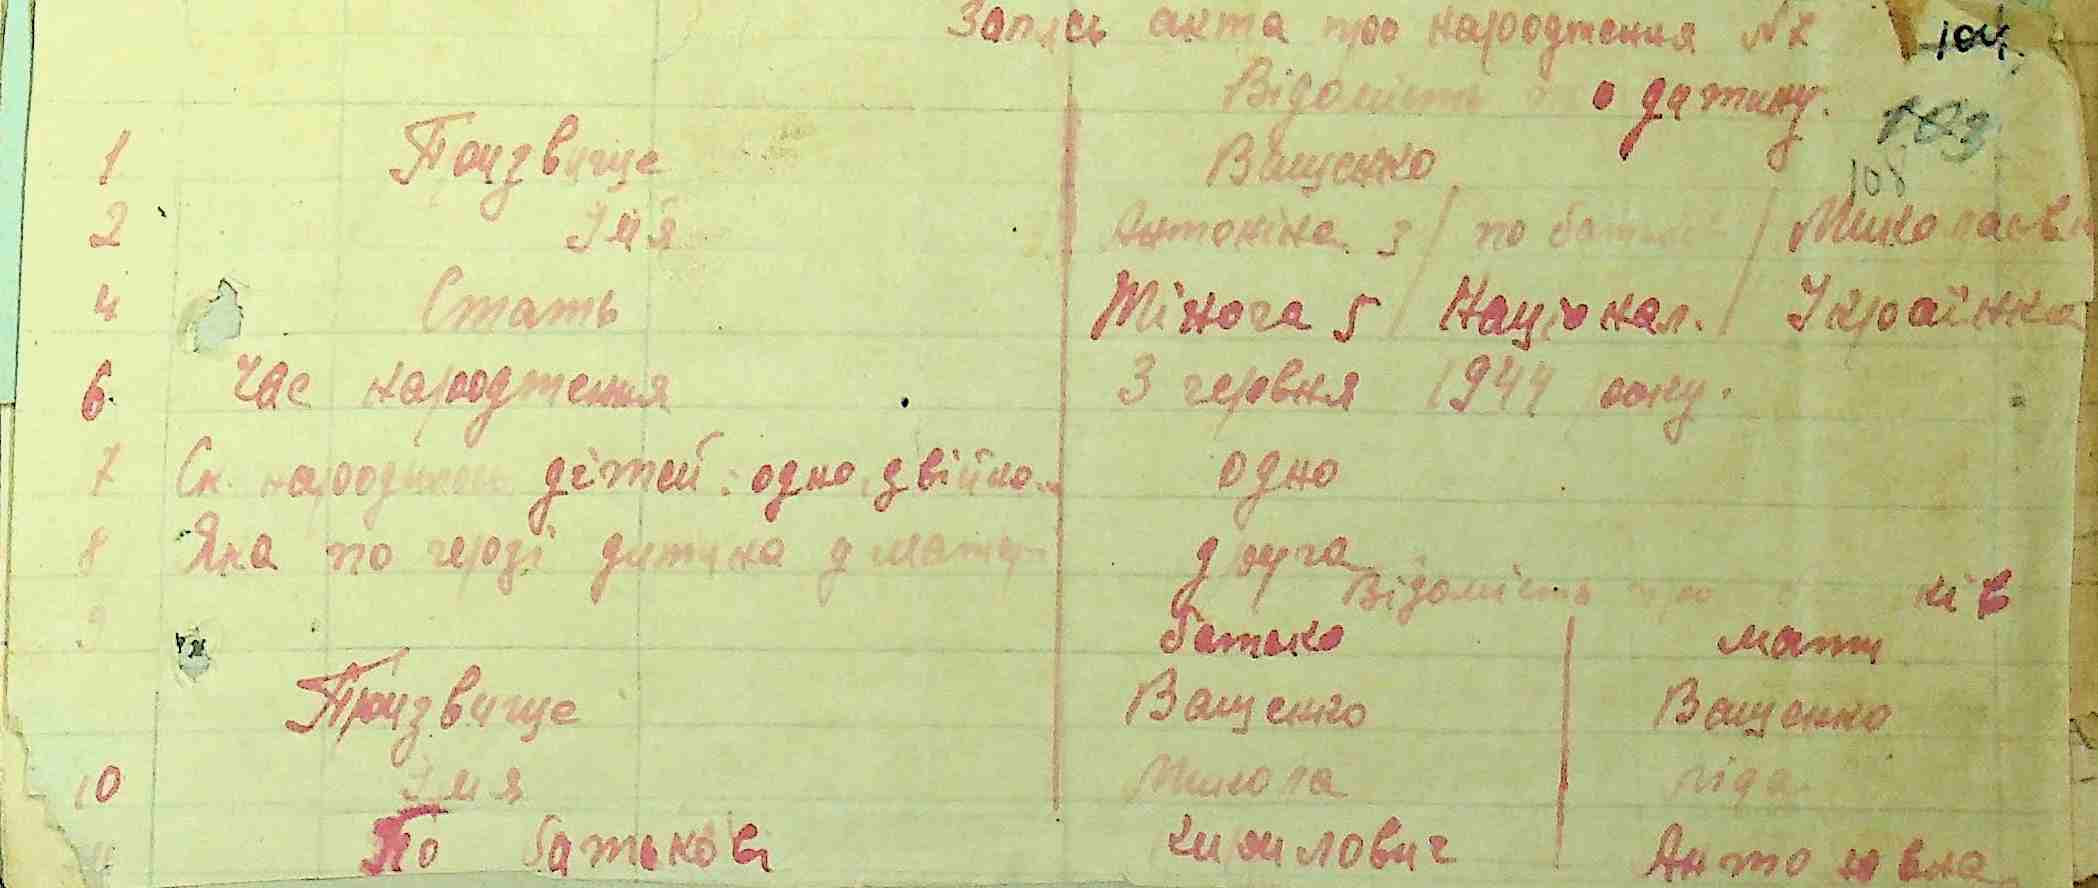 Запись акта про народження N 7
104.
Відомість про дитину.
103
108
1 Призвище Ващенко
2 Імя Антоніна 3 / по батькові / Миколаєвна
4 Стать Жіноча 5 / Націонал. / Українка
6. Час народження 3 червня 1944 року.
7 Ск. народжено дітей: одно, двійко.. одно
8 Яка по черзі дитина у матері друга
Відомість про ків
9 батько мати
Призвище Ващенко Ващенко
10 Імя Микола Ліда
11 По батькові Кирилович Антоновна